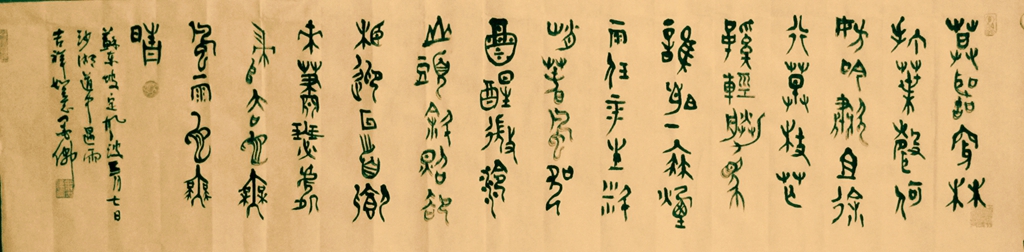 莫聽穿林
打葉聲何
妨吟嘯且徐
行竹杖芒
鞋輕勝馬
誰怕一蓑煙
雨任平生料
峭春風吹
酒醒微冷
山頭斜照卻
相迎回首向
來蕭瑟處
歸去也無
風雨也無
晴
蘇東坡定風波三月七日
沙湖道中遇雨
吉祥如意